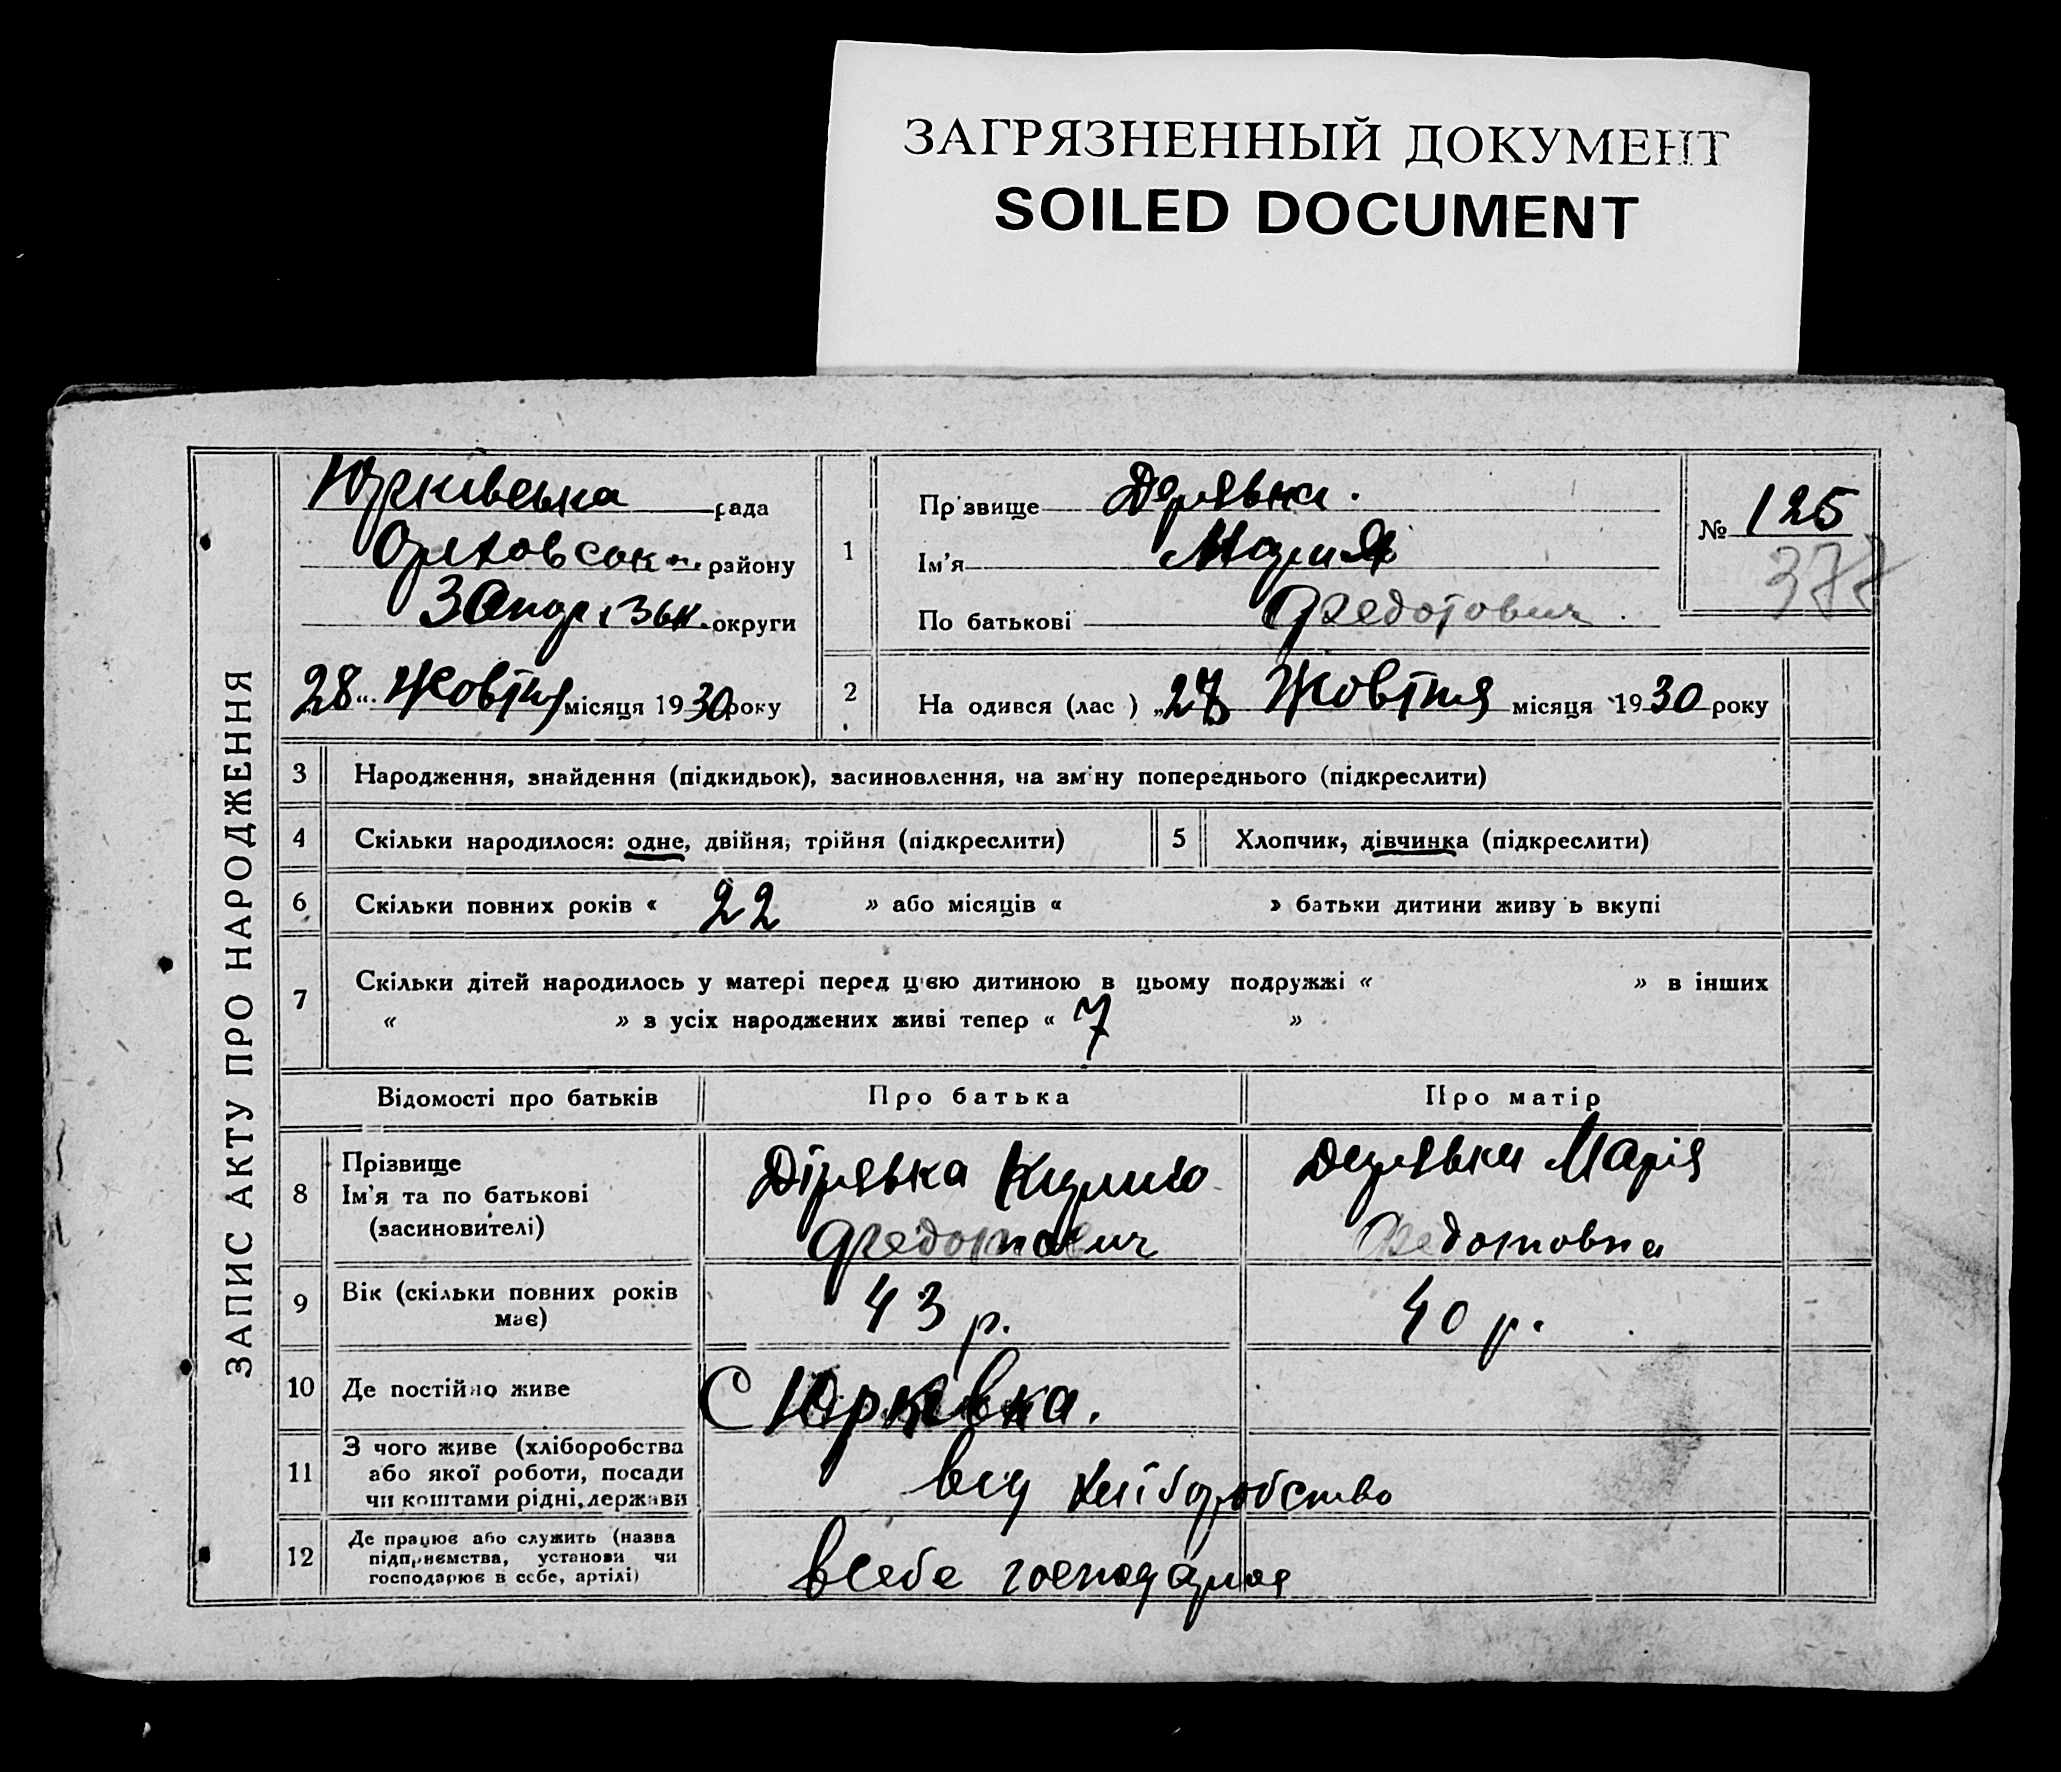 ЗАГРЯЗНЕННЫЙ ДОКУМЕНТ
SOILED DOCUMENT
ЗАПИС АКТУ ПРО НАРОДЖЕННЯ
Юрківська рада
Оріховськ району
Запорізьк. округи
„28“ Жовтня місяця 1930 року
1
Прізвище Дерявка.
Ім'я Мария
По батькові Федотович
№ 125
377
2
На одився (лас ) „27 Жовтня місяця 1930 року
3 Народження, знайдення (підкидьок), засиновлення, на зміну попереднього (підкреслити)
4 Скільки народилося: одне, двійня, трійня (підкреслити)
5 Хлопчик, дівчинка (підкреслити)
6 Скільки повних років « 22 » або місяців « » батьки дитини живуть вкупі
7 Скільки дітей народилось у матері перед цією дитиною в цьому подружжі « » в інших
« » з усіх народжених живі тепер « 7 »
Відомості про батьків Про батька Про матір
8 Прізвище
Ім'я та по батькові
(засиновителі)
Дірявка Кирило
Федотович
Дерявка Марія
Федотовна
9 Вік (скільки повних років
має)
43 р. 40 р.
10 Де постійно живе С Юрківка.
11 З чого живе (хліборобства
або якої роботи, посади
чи коштами рідні, держави
від хліборобство
12 Де працює або служить (назва
підприємства, установи чи
господарює в себе, артілі)
всебе господарює